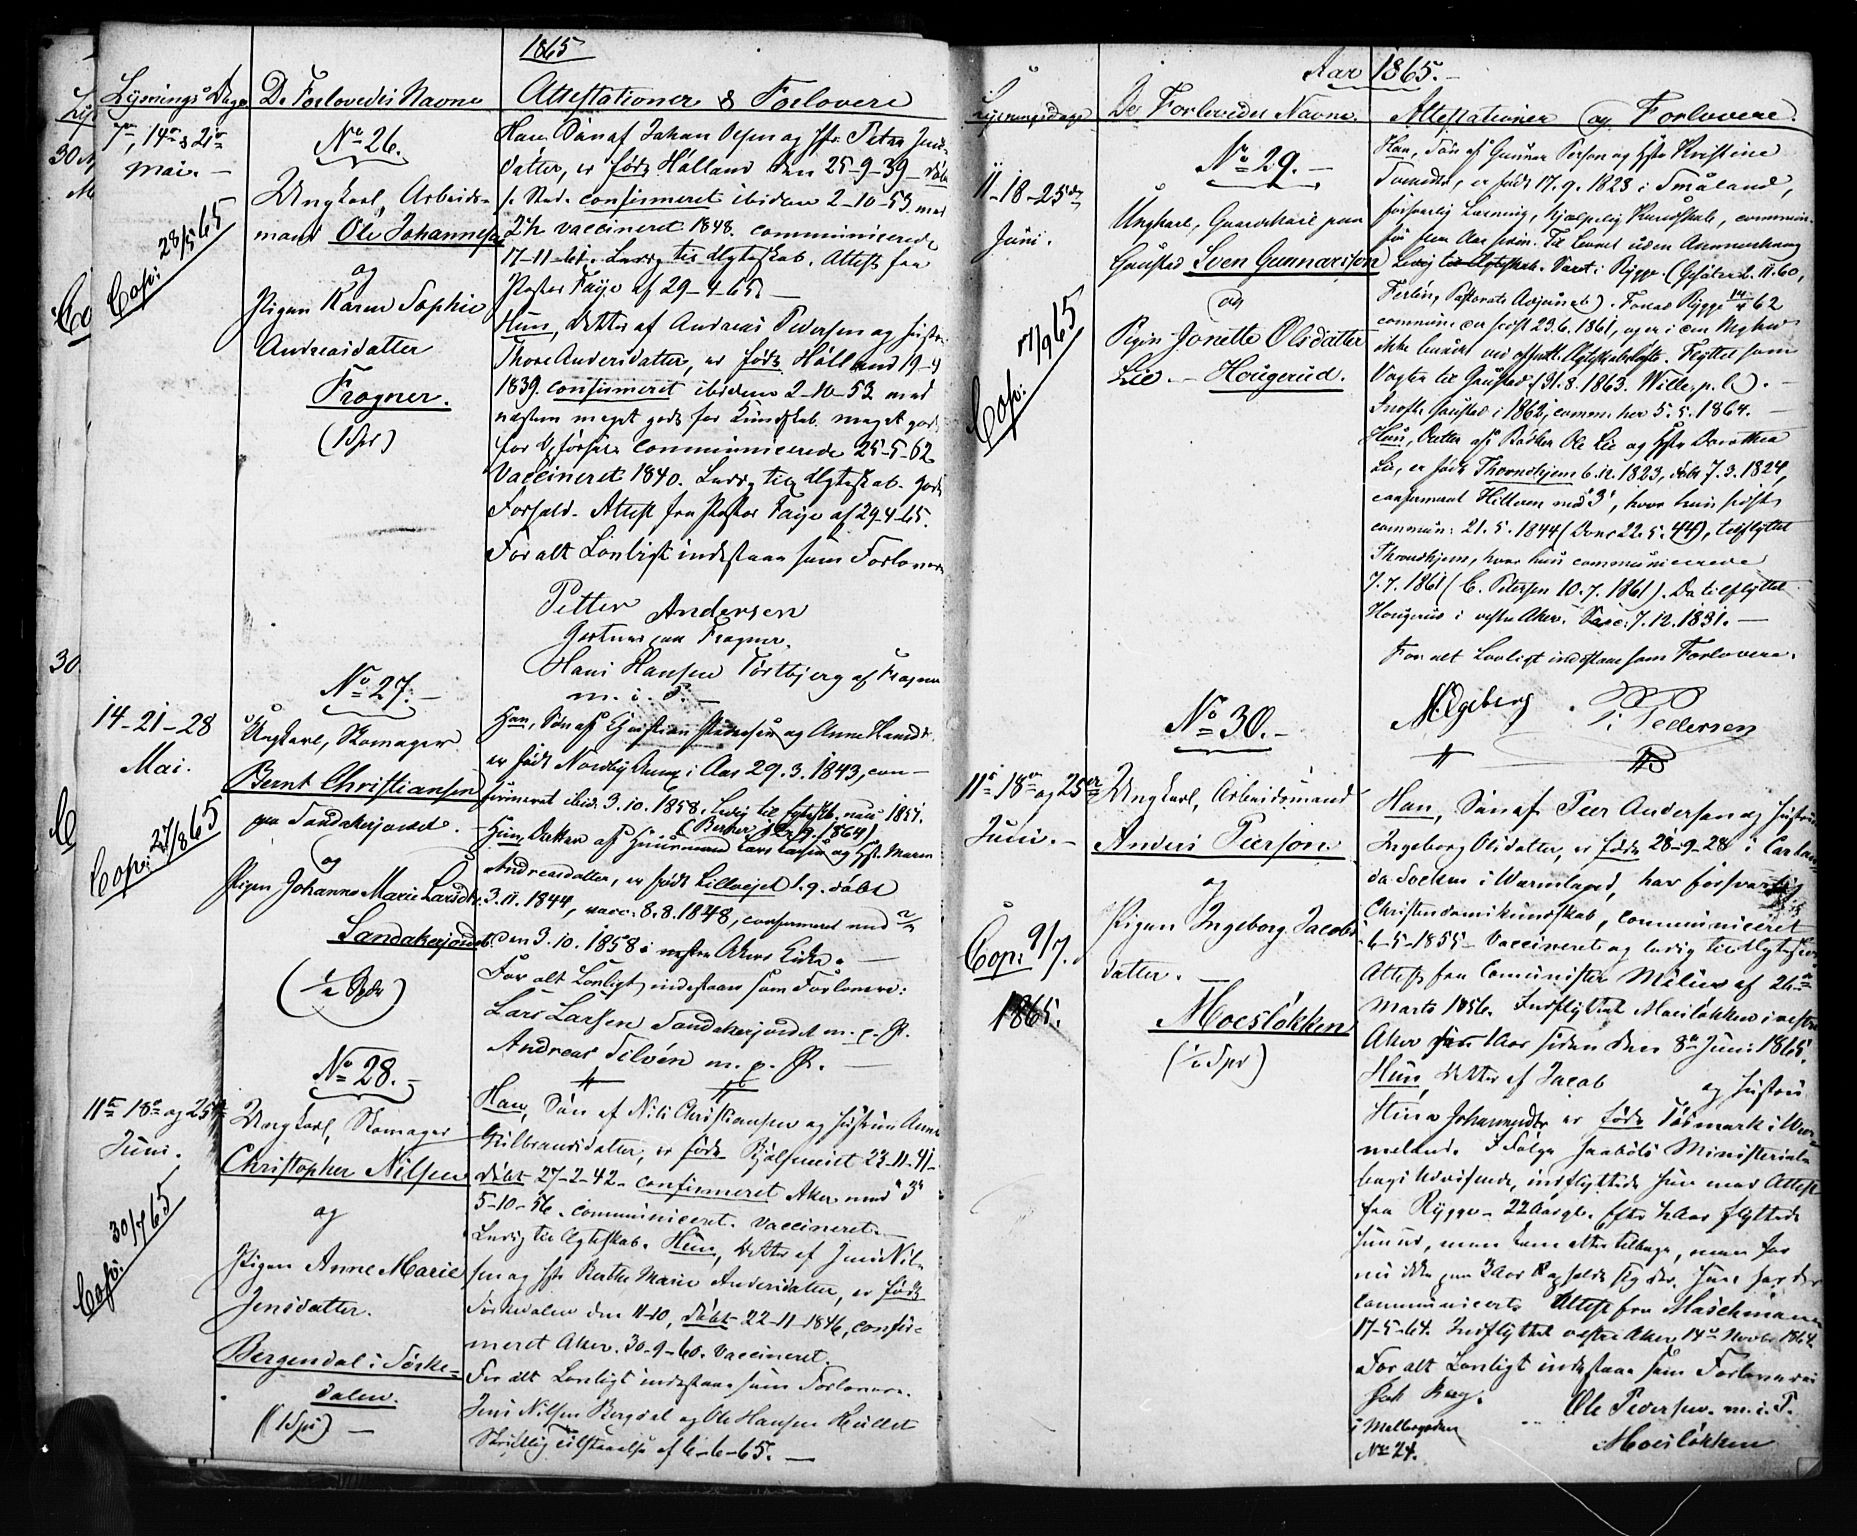 1865
Lysnings Dage De Forlovedes Navne Attestationer & Forlovere
7de, 14de & 21de
Mai. —
Cop: 28/5 65
No 26.
Ungkarl, Arbeids-
mand Ole Johannesen
og
Pigen Karen Sophie
Andreasdatter
Frogner.
(1 Spd)
Han Søn af Johan Olsen og Hstr Petra Jens-
datter, er født Holland den 25-9-39 døbt
s. Sted. confirmeret ibidem 2-10-53 med
vaccineret 1848. communicerede
17-11-61. Ledig til Ægteskab. Attest fra
Pastor Faye af 29-4-65. —
Hun, Datter af Andreas Pedersen og Hustru
Thore Andersdatter, er født Holland 19-9
1839. confirmeret ibidem 2-10-53 med
næsten meget godt for Kundskab meget godt
for Opførsel communicerede 25-5-62
Vaccineret 1840. Ledig til Ægteskab. godt
Forhold. Attest fra Pastor Faye af 29-4-65.
For alt Lovligt indestaar som Forlovere
Petter Andersen
Gartner paa Frogner.
Hans Hansen Tørtbjerg af Frogner
m. i. P. —
14-21-28
Mai.
Cop: 27/8 65
No 27. —
Ungkarl, Skomager
Bernt Christiansen
paa Sandakerjordet. —
og
Pigen Johanne Marie Larsdtr.
Sandakerjordet.
(1/2 Spd)
Han, Søn af Christian Pedersen og Anne Hansdtr.
er født Nordby Annex i Aas 29.3.1843, con-
firmeret ibid. 3.10.1858. Ledig til Egtesk. vac. 1851.
Hun, Datter af Huusmand Lars Larsen og Hst. Maren
Andreasdatter, er født Lillevejet s. g. døbt
3.11.1844, vacc. 8.8.1848, confirmeret med
den 3.10.1858 i vestre Akers Kirke. —
For alt Lovligt indestaar som Forlovere:
Lars Larsen Sandakerjordet m. p. P.
Andreas Silvén m. p. P. —
11te 18de og 25de
Juni.
Cop: 30/7 65
No 28. —
Ungkarl, Skomager
Christopher Nilsen
og
Pigen Anne Marie
Jensdatter.
Bergendal i Sørke-
dalen.
(1 Spd) —
Han, Søn af Nils Christiansen og Hustru Anne
Gulbrandsdatter, er født 23-11-41-
døbt 27-2-42. confirmeret Aker med "3"
5-10-56. communiceret. vaccineret.
Ledig til Ægteskab. Hun, Datter af Jens Nil-
sen og Hstr Berthe Marie Andersdatter, er født
Sørkedalen den 11-10, døbt 22-11-1846, confir-
meret Aker. 30-9-60. Vaccineret.
For alt Lovligt indestaar som Forlovere.
Jens Nilsen Bergdal og Ole Hansen
Skriftlig Tilstaaelse af 6-6-65. —
Aar 1865. —
Lysningsdage De Forlovedes Navne. Attestationer og Forlovere.
11-18-25de
Juni.
Cop: 17/9 65
No 29. —
Ungkarl, Gaardskarl paa
Gaustad Sven Gunnarison
og
Pigen Jonette Olsdatter
Lie. — Hougerud.
Han, Søn af Gunnar Person og Hstr Kristine
Svensdtr, er født 17.9.1823 i Småland,
forsvarlig Læsning, hjælpelig Kundskab, commun.
for flere Aar siden. Til Levnet uden Anmærkning
Ledig til Ægteskab. Været i Rygge.
commun. der sidst 23.6.1861, og er i den Meghed
ikke hindret ved offentl. Ægteskabsløfte. Flyttet som
Vogter til Gaustad 31.8.1863. Wille, p. l). —
Indfl. Gaustad i 1862, comm. her 5.5.1864. —
Hun, Datter af Bødker Ole Lie og Hstr Dorothea
Lie, er født Throndhjem 6.12.1823, døbt 7.3.1824,
confirmeret Hitteren med "3", hvor hun sidst
commun: 21.5.1844 (Dons 22.5.44), tilflyttet
Throndhjem, hvor hun communicerede
7.7.1861 (C. Petersen 10.7.1861). Da tilflyttet
Hougerud i vestre Aker. Vacc. 7.12.1831. —
For alt Lovligt indestaar som Forlovere.
M. Egeberg. P. Pedersen
11te 18de og 25de
Juni. —
Cop: 9/7.
1865.
No 30. —
Ungkarl, Arbeidsmand
Anders Pierson
og
Pigen Ingeborg Jacobs-
datter.
Moesløkken
(1/2 Spd)
Han, Søn af Peer Andersen og Hustru
Ingeborg Olsdatter, er født 28-9-28 i Carlan-
da Sochen i Warmland, har forsvarlig
Christendomskundskab, communiceret
6-5-1855- Vaccineret og ledig til Ægteskab
Attest fra Comminister Milien af 26de
Marts 1856. Indflyttet Moesløkken i vestre
Aker for Aar siden den 8de Juni 1865.
Hun, Datter af Jacob og Hustru
Stina Johannesdtr er født Tösmark i Wer-
meland. I Følge Ministerial-
bogs Udvisende, indflyttede hun med Attest
fra Rygge- 22 Aar gl. Efter Aar flyttede
hun ud, men kom atter tilbage, men har
nu ikke paa 3 Aar opholdt sig der. Hun har der
communiceret. Attest fra Maschmann
17-5-64. Indflyttet vestre Aker 14de Novbr 1864.
For alt Lovligt indestaar som Forlovere:
Jak Berg.
i Møllergaden
No 24.
Ole Pedersen. m. i. P.
Moesløkken